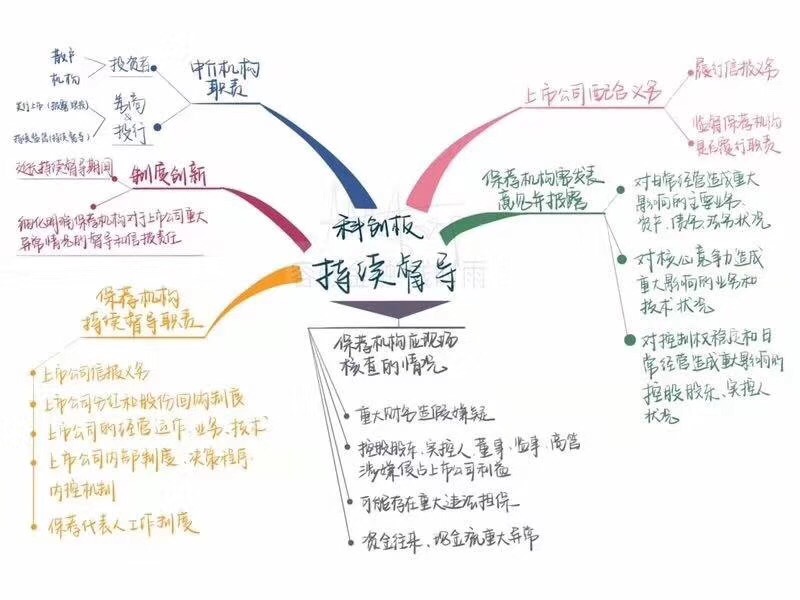 科创板
持续督导
中介机构
职责
投资者
散户
机构
券商
&
投行
发行上市(披露核查)
持续监管(持续督导)
制度创新
延长持续督导期间
细化明确保荐机构对于上市公司重大
异常情况的督导和信披责任
保荐机构
持续督导职责
上市公司信披义务
上市公司分红和股份回购制度
上市公司的经营运作、业务、技术
上市公司内部制度、决策程序、
内控机制
保荐代表人工作制度
保荐机构应现场
核查的情况
重大财务造假嫌疑
控股股东、实控人、董事、监事、高管
涉嫌侵占上市公司利益
可能存在重大违法担保
资金往来、现金流重大异常
保荐机构需发表
意见并披露
对日常经营造成重大
影响的主要业务、
资产、债务等状况
对核心竞争力造成
重大影响的业务和
技术状况
对控制权稳定和日
常经营造成重大影响的
控股股东、实控人
状况
上市公司配合义务
履行信披义务
监督保荐机构
是否履行职责